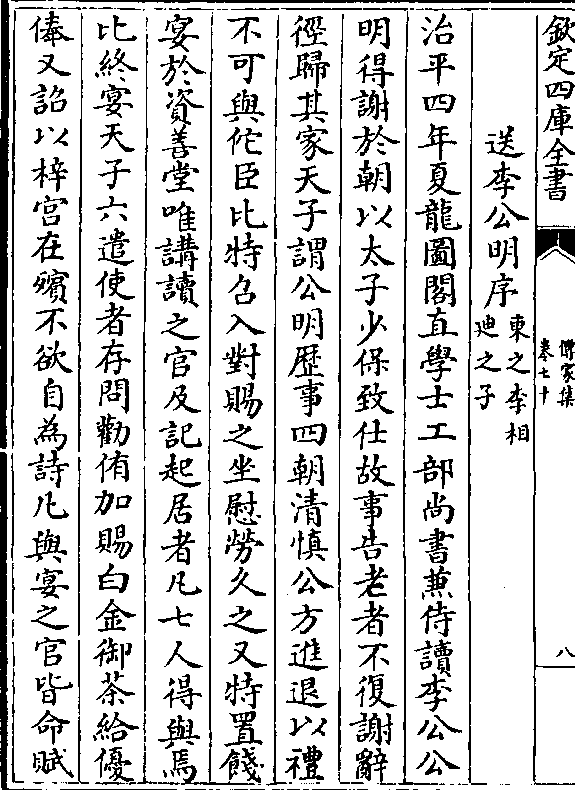 欽定四庫全書
傳家集
卷七十
八
送李公明序
東之李相
廸之子
治平四年夏龍圖閣直學士工部尚書兼侍讀李公公
明得謝於朝以太子少保致仕故事告老者不復謝辭
徑歸其家天子謂公明歴事四朝清慎公方進退以禮
不可與佗臣比特召入對賜之坐慰勞久之又特置餞
宴於資善堂唯講讀之官及記起居者凡七人得與焉
比終宴天子六遣使者存問勸侑加賜白金御茶給優
俸又詔以梓宮在殯不欲自為詩凡與宴之官皆命賦